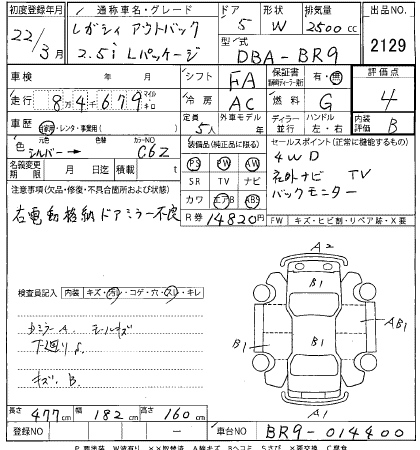 初度登録年月 通称車名・グレード ドア 形状 排気量 出品NO.
22/3月 レガシィ アウトバック 2.5i Lパッケージ 5 W 2500cc 2129
型式 DBA-BR9
車検 年 月 シフト FA 保証書 有・無 評価点 4
走行 8万4千679 マイル キロ 冷房 AC 燃料 G
車歴 自家用・レンタ・事業用( ) 定員 5人 外車モデル 年 ディーラー 並行 ハンドル 左・右 内装 B
色 元色 シルバー → 色替 カラーNO C6Z
装備品(純正品に限る) セールスポイント(正常に機能するもの)
PS PW AW
4WD
名義変更期限 月 日迄 積載 t SR TV ナビ
社外ナビ TV
注意事項(欠品・修復・不具合箇所および状態) カワ エアB ABS
バックモニター
右電動格納ドアミラー不良
R券 14820円 FW キズ・ヒビ割・リペア跡・X要
A2
検査員記入 内装 キズ・汚レ・コゲ・穴・スレ・キレ
B1
B1
AB1
B1
A1
ドアミラーA モールキズ
下廻りS
キズ、B
長さ 477cm 幅 182cm 高さ 160cm
登録NO ー 車台NO BR9-014400